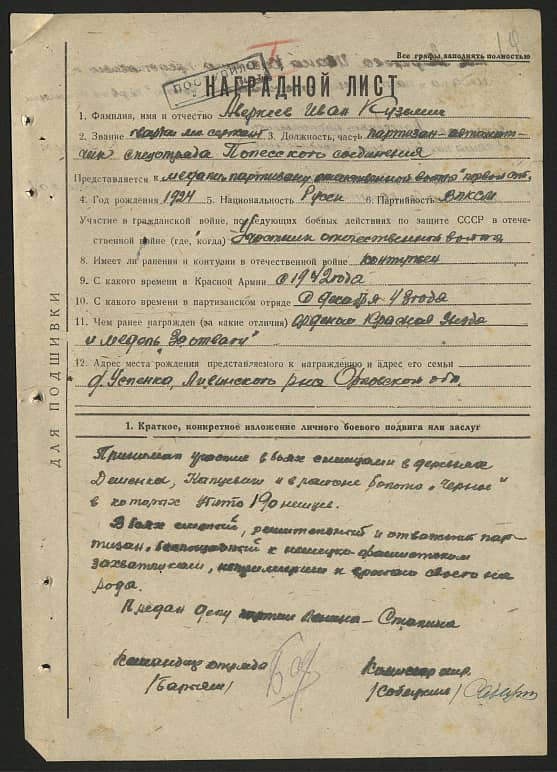 Все графы заполнять полностью
НАГРАДНОЙ ЛИСТ
1. Фамилия, имя и отчество Аверкиев Иван Кузьмич
2. Звание гвардии мл. сержант 3. Должность, часть партизан-автомат-
чик спецотряда Полесского соединения
Представляется к медали партизану отечественной войны первой ст.
4. Год рождения 1924 5. Национальность Русск 6. Партийность ВЛКСМ
Участие в гражданской войне, последующих боевых действиях по защите СССР в отече-
ственной войне (где, когда) Участник отечественной войны
8. Имеет ли ранения и контузии в отечественной войне контужен
9. С какого времени в Красной Армии с 1942 года
10. С какого времени в партизанском отряде с декабря 43 года
11. Чем ранее награжден (за какие отличия) орденом Красная Звезда
и медаль "За отвагу"
12. Адрес места рождения представляемого к награждению и адрес его семьи
д. Успенка, Ливинского р-на Орловской обл.
ДЛЯ ПОДШИВКИ
1. Краткое, конкретное изложение личного боевого подвига или заслуг
Принимал участие в боях с немцами в деревнях
и в районе болота "Черное"
в которых убито 190 немцев.
В боях смелый, решительный и отважный пар-
тизан, к немецко-фашистским
захватчикам, непримирим к врагам своего на
рода.
Предан делу партии Ленина-Сталина
Командир отряда Комиссар